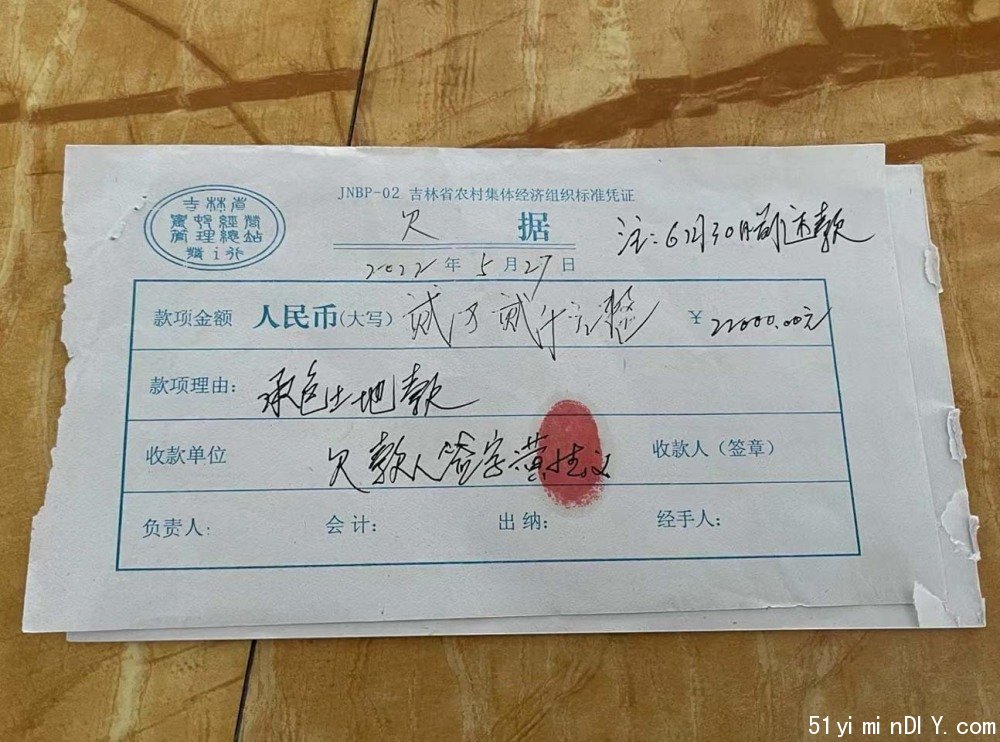 JNBP-02 吉林省农村集体经济组织标准凭证
吉林省
农村经济
管理总站
欠 据
注:6月30日前还款
2022年5月27日
款项金额 人民币(大写) 贰万贰仟元整 ¥22000.00元
款项理由: 承包土地款
收款单位 欠款人签字黄 收款人(签章)
负责人: 会计: 出纳: 经手人:
51yiminDIY.com